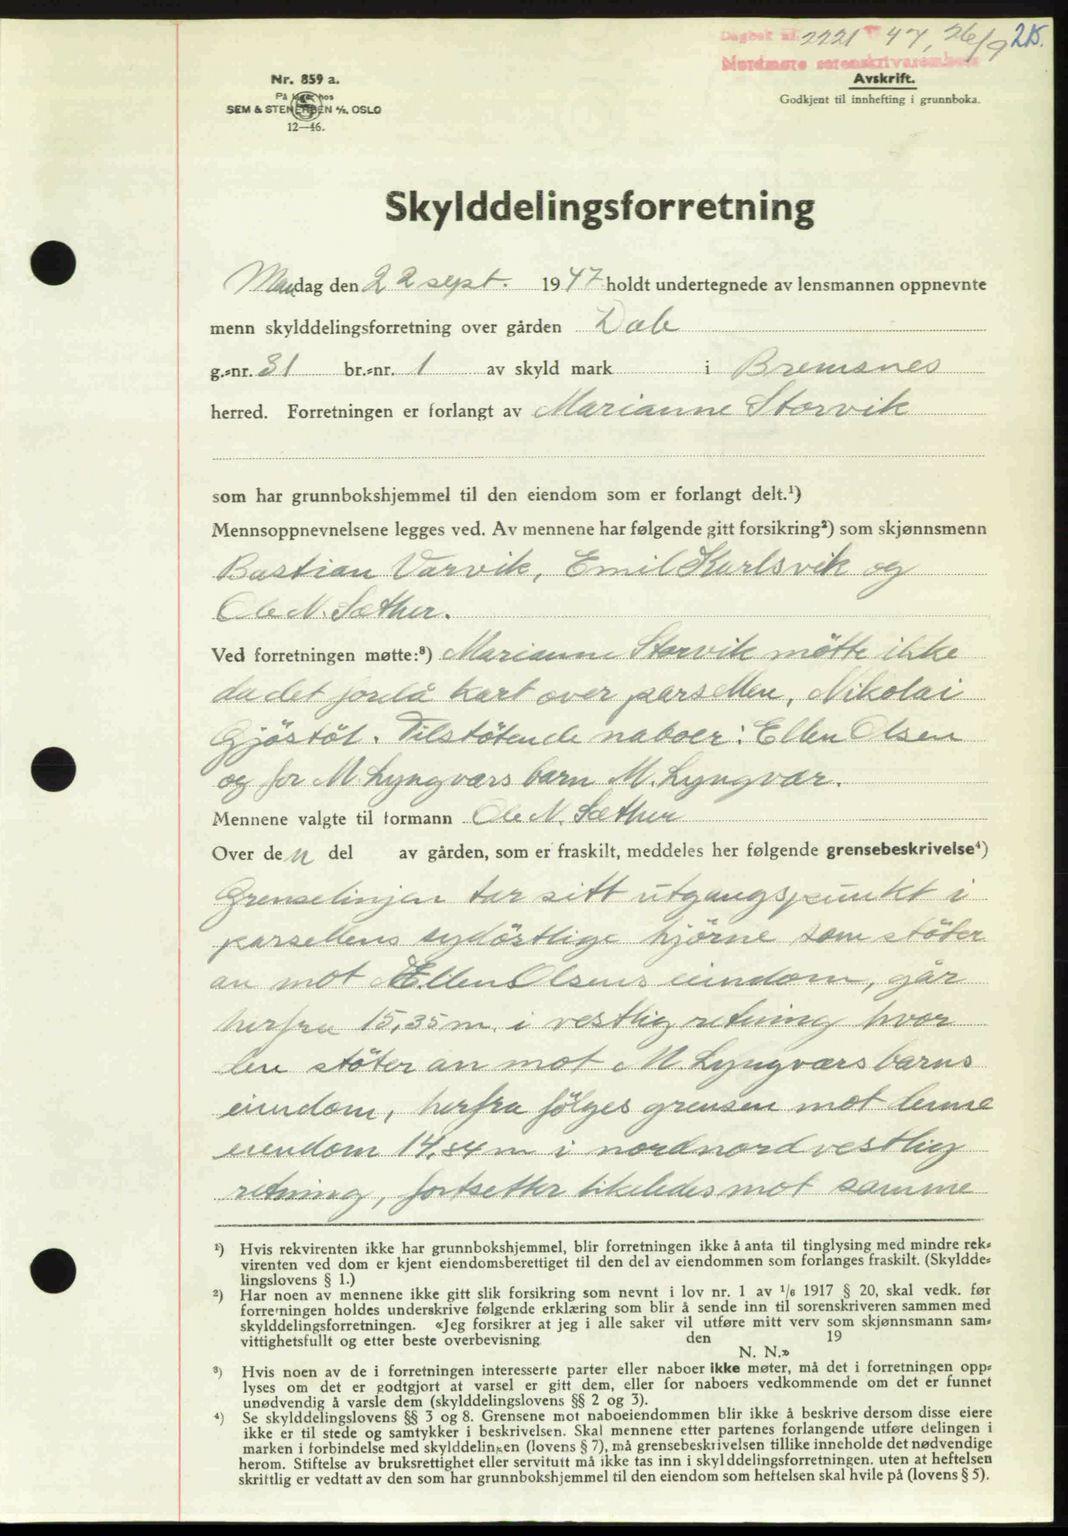 Dagbok nr. 2221 47, 26/9 215.
Nordmøre sorenskriverembete
Nr. 859 a.
På lager hos
SEM & STENERSEN A/S, OSLO
12—46.
Avskrift.
Godkjent til innhefting i grunnboka.
Skylddelingsforretning
Mandag den 22 sept. 1947 holdt undertegnede av lensmannen oppnevnte
menn skylddelingsforretning over gården Dale
g.-nr. 31 br.-nr. 1 av skyld mark i Bremsnes
herred. Forretningen er forlangt av Marianne Storvik
som har grunnbokshjemmel til den eiendom som er forlangt delt.¹)
Mennsoppnevnelsene legges ved. Av mennene har følgende gitt forsikring²) som skjønnsmenn
Bastian Varvik, Emil Karlsvik og
Ole N. Sæther.
Ved forretningen møtte:³) Marianne Storvik mötte ikke
da det forelå kart over parsellen, Nikolai
Gjöstöl. Tilstötende naboer: Ellen Olsen
og for M. Lyngværs barn M. Lyngvær.
Mennene valgte til formann Ole N. Sæther
Over den del av gården, som er fraskilt, meddeles her følgende grensebeskrivelse⁴)
Grenselinjen tar sitt utgangspunkt i
parsellens sydöstlige hjörne som stöter
an mot Ellen Olsens eiendom, går
herfra 15,35 m. i vestlig retning hvor
den stöter an mot M. Lyngværs barns
eiendom, herfra fölges grensen mot denne
eiendom 14,84 m i nordnordvestlig
retning, fortsetter likeledes mot samme
¹) Hvis rekvirenten ikke har grunnbokshjemmel, blir forretningen ikke å anta til tinglysing med mindre rek-
virenten ved dom er kjent eiendomsberettiget til den del av eiendommen som forlanges fraskilt. (Skyldde-
lingslovens § 1.)
²) Har noen av mennene ikke gitt slik forsikring som nevnt i lov nr. 1 av 1/6 1917 § 20, skal vedk. før
forretningen holdes underskrive følgende erklæring som blir å sende inn til sorenskriveren sammen med
skylddelingsforretningen. «Jeg forsikrer at jeg i alle saker vil utføre mitt verv som skjønnsmann sam-
vittighetsfullt og etter beste overbevisning den 19
N. N.»
³) Hvis noen av de i forretningen interesserte parter eller naboer ikke møter, må det i forretningen opp-
lyses om det er godtgjort at varsel er gitt dem, eller for naboers vedkommende om det er funnet
unødvendig å varsle dem (skylddelingslovens §§ 2 og 3).
⁴) Se skylddelingslovens §§ 3 og 8. Grensene mot naboeiendommen blir ikke å beskrive dersom disse eiere
ikke er til stede og samtykker i beskrivelsen. Skal mennene etter partenes forlangende utføre delingen i
marken i forbindelse med skylddelingen (lovens § 7), må grensebeskrivelsen tillike inneholde det nødvendige
herom. Stiftelse av bruksrettighet eller servitutt må ikke tas inn i skylddelingsforretningen. uten at heftelsen
skriftlig er vedtatt av den som har grunnbokshjemmel til den eiendom som heftelsen skal hvile på (lovens § 5).